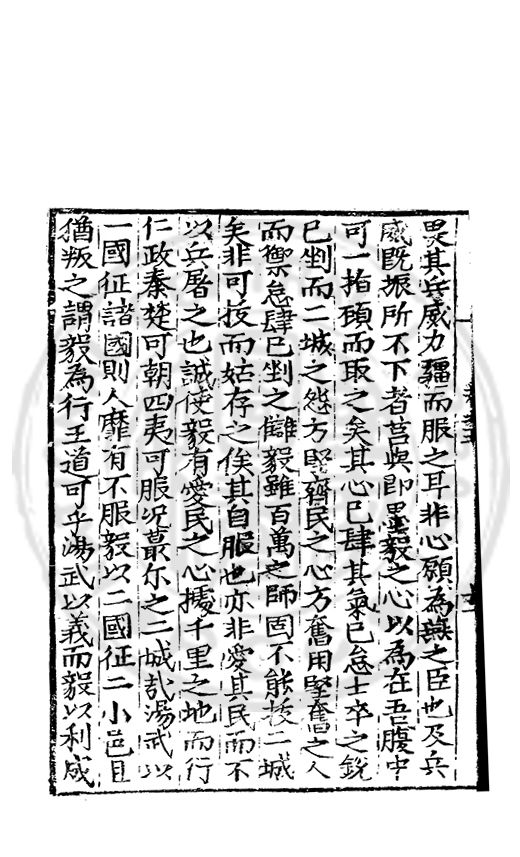 畏其兵威力彊而服之耳非心願為燕之臣也及兵
威既振所不下者莒與即墨毅之心以為在吾腹中
可一指顧而取之矣其心已肆其氣已怠士卒之銳
已剉而二城之怨方堅齊民之心方奮用堅奮之人
而禦怠肆已剉之讎毅雖百萬之師固不能拔二城
矣非可拔而姑存之俟其自服也亦非愛其民而不
以兵屠之也誠使毅有愛民之心擾千里之地而行
仁政秦楚可朝四夷可服况蕞尔之二城哉湯武以
一國征諸國則人靡有不服毅以二國征二小邑且
猶叛之謂毅為行王道可乎湯武以義而毅以利成